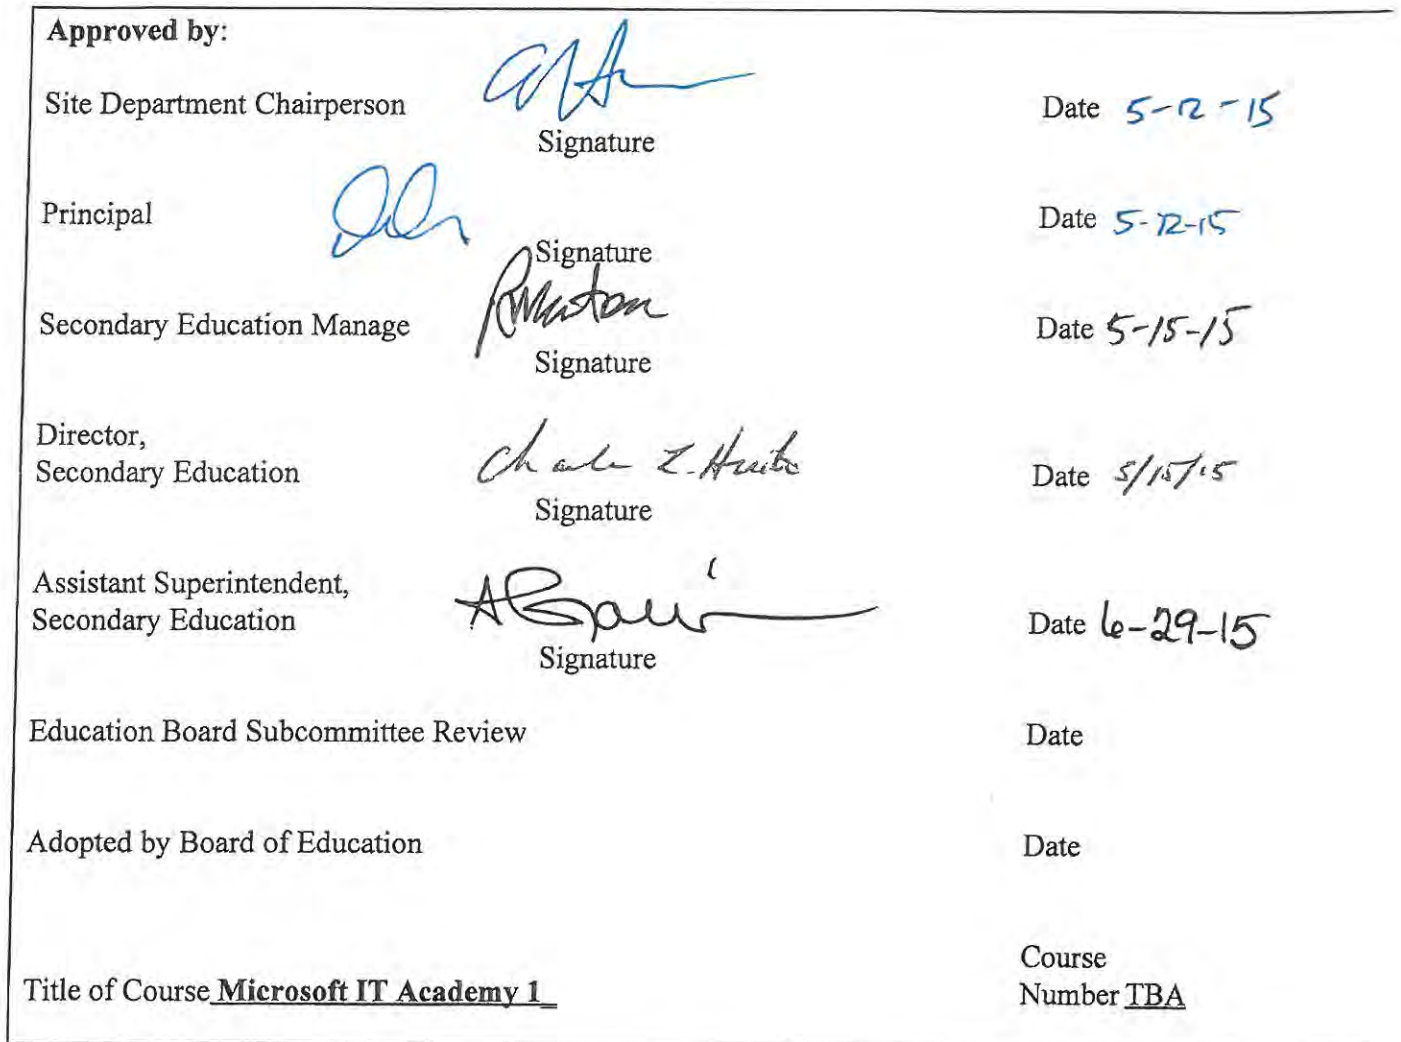 Approved by:
Site Department Chairperson
Signature
Date 5-12-15
Principal
Signature
Date 5-12-15
Secondary Education Manage
Signature
Date 5-15-15
Director,
Secondary Education
Signature
Date 5/15/15
Assistant Superintendent,
Secondary Education
Signature
Date 6-29-15
Education Board Subcommittee Review
Date
Adopted by Board of Education
Date
Title of Course Microsoft IT Academy 1
Course
Number TBA